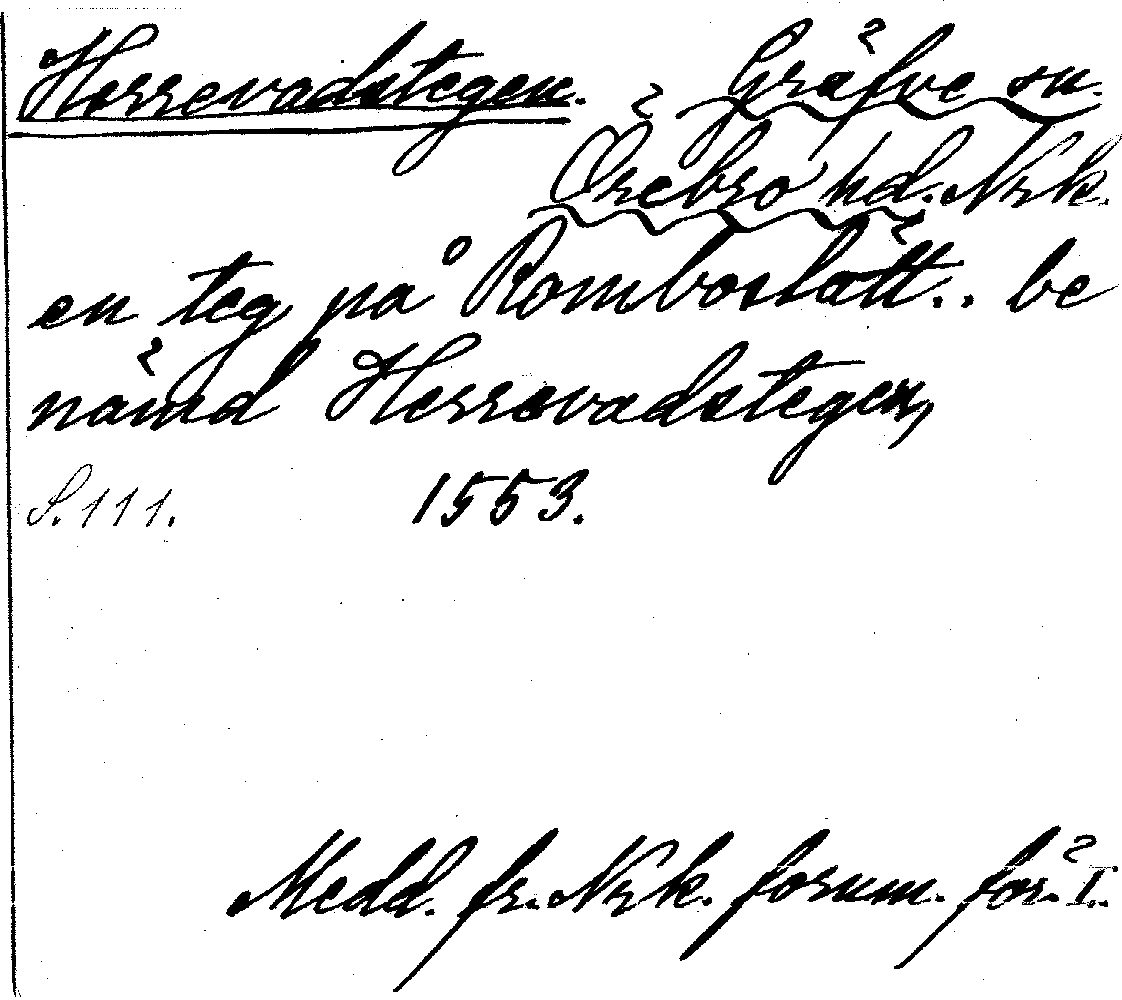 Herrevadstegen. Gräfve sn.
Örebro hd. Nrk.
en teg påRomboslätt.. be
nämd Herrevadstegen,
S. 111. 1553.
Medd. fr. Nrk. fornm. för. I.